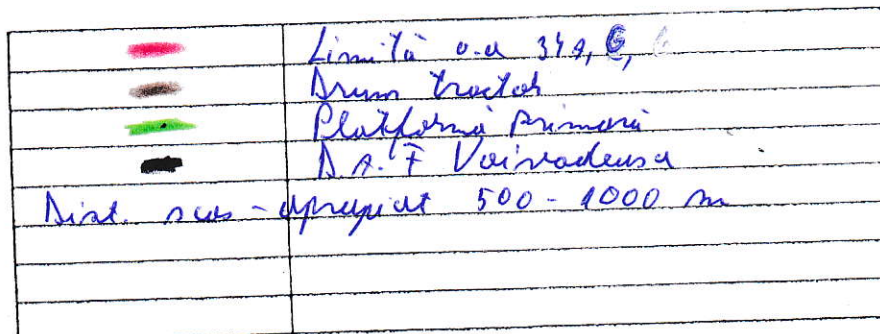 Limită u.a 34A, G,
Drum tractor
Platformă primară
D.A.F Voivodeasa
Dist. scos-apropiat 500-1000 m